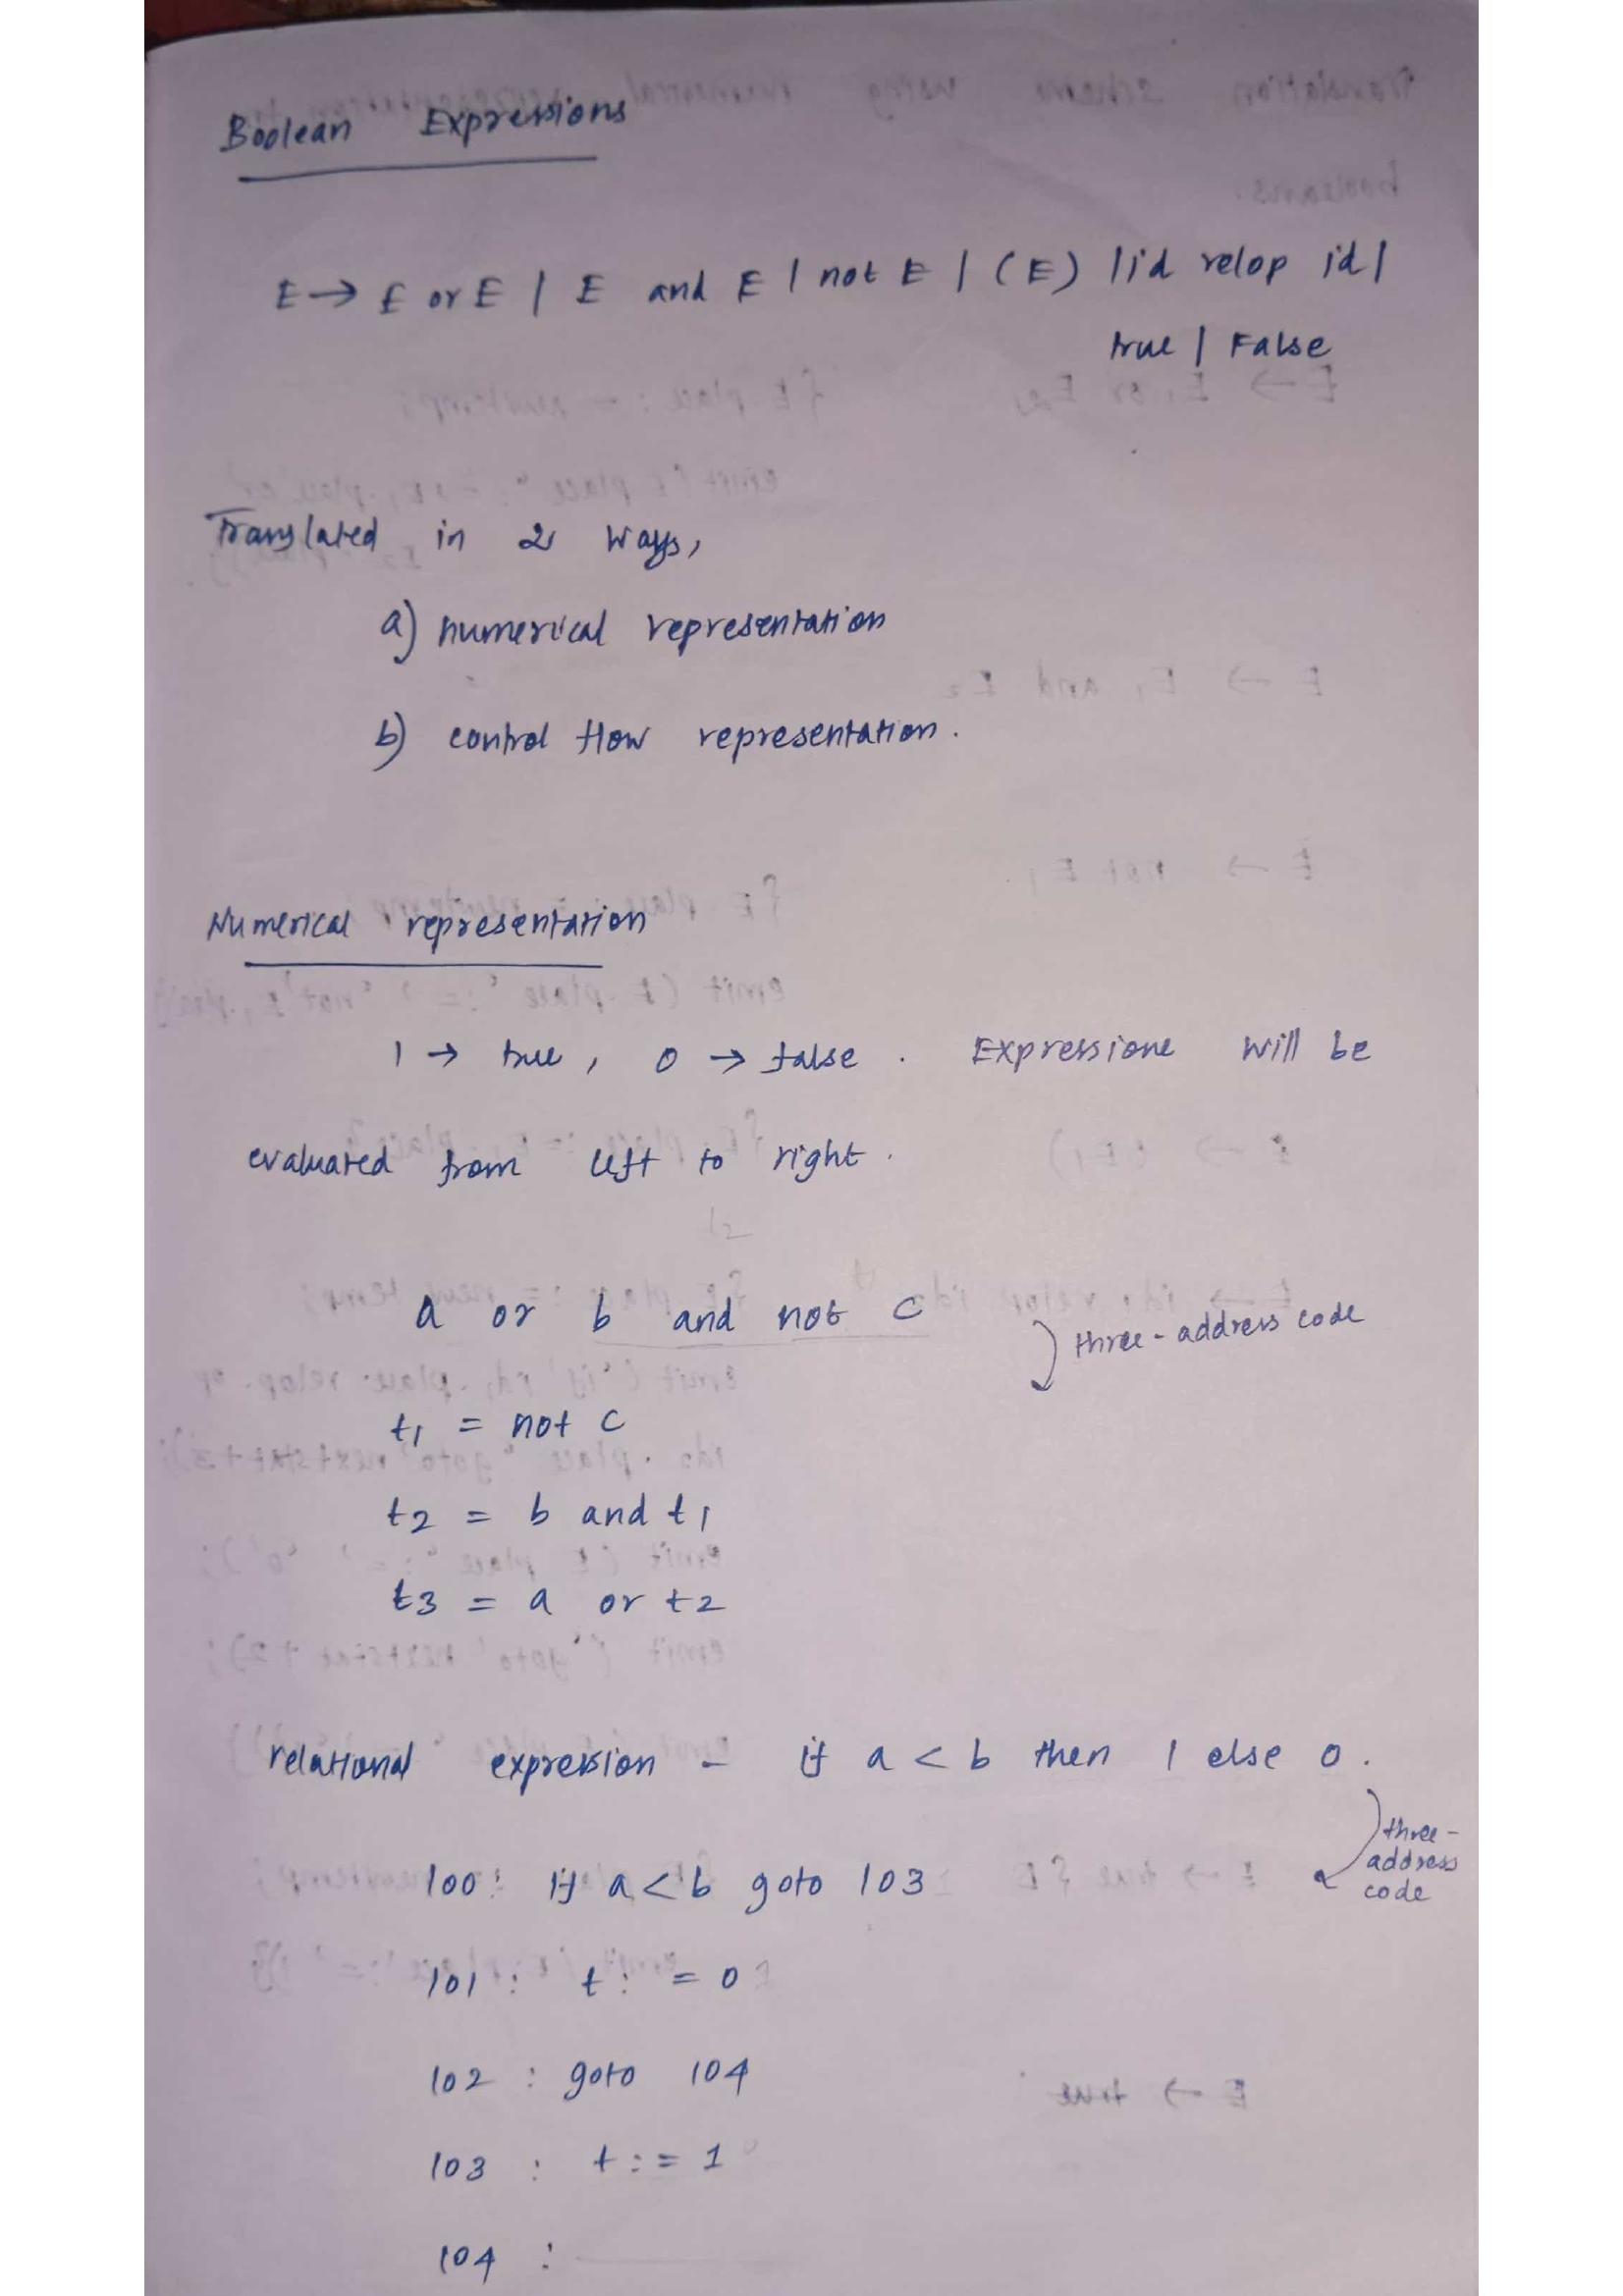 Boolean Expressions
E → E or E | E and E | not E | (E) | id relop id |
true | False
Translated in 2 ways,
a) numerical representation
b) control flow representation.
Numerical representation
1 → true, 0 → false. Expressions will be
evaluated from left to right.
a or b and not c
three-address code
t1 = not c
t2 = b and t1
t3 = a or t2
relational expression - if a < b then 1 else 0.
three-
address
code
100: if a < b goto 103
101: t: = 0
102: goto 104
103: t:= 1
104: